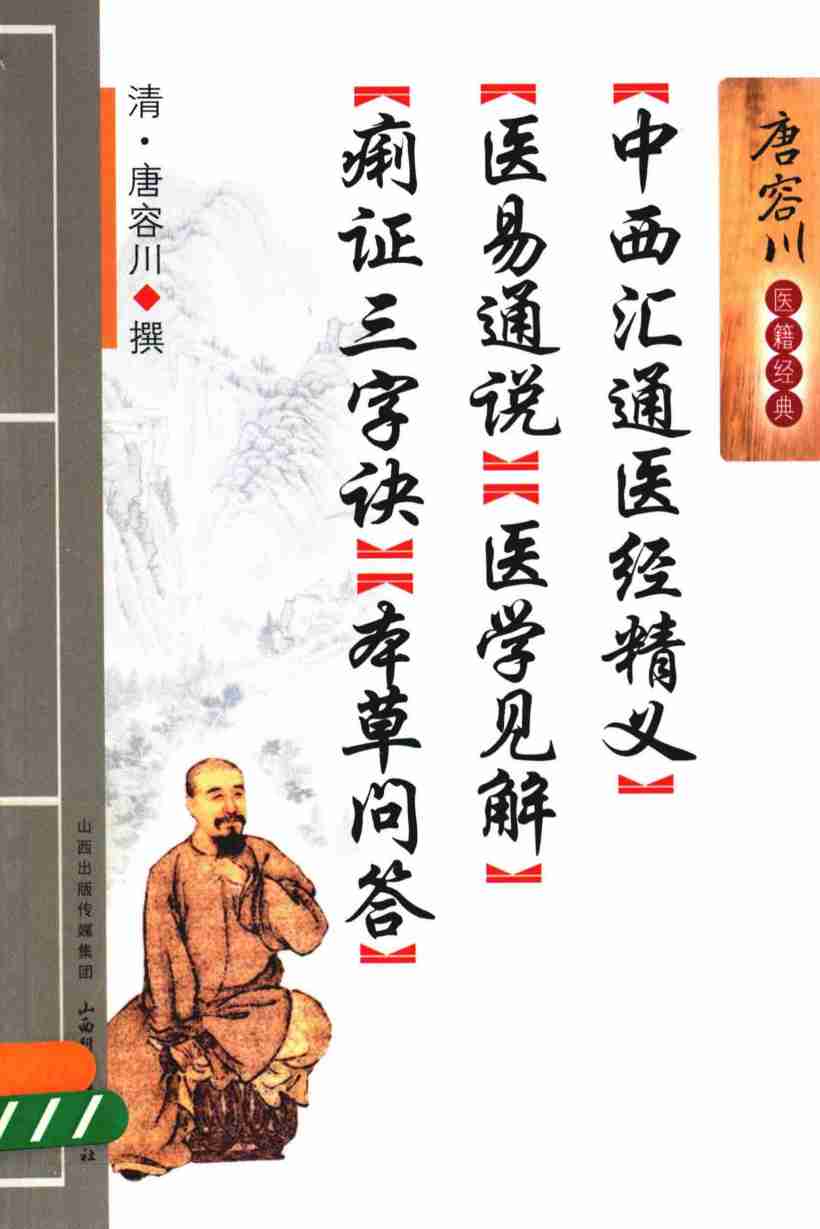 唐容川
医籍经典
【中西汇通医经精义】
【医易通说】【医学见解】
【痢证三字诀】【本草问答】
清·唐容川◆撰
山西出版传媒集团 山西
社